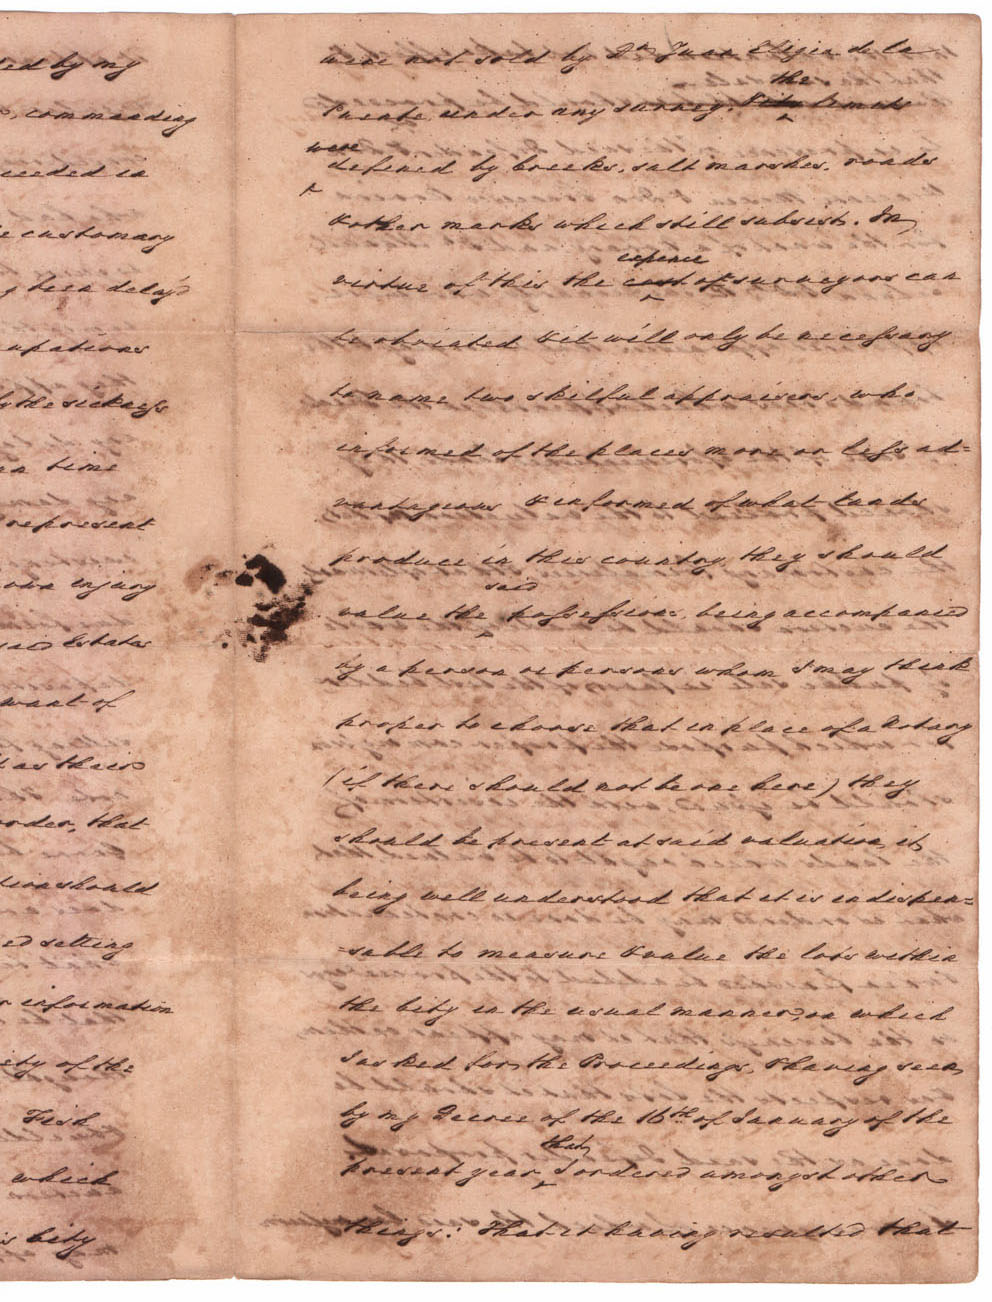 ted by my
commanding
ceeded in
e customary
g been delay'd
upations
by the sickness
n time
represent
own injury
said Estates
want of
t as their
order, that
tion should
ed setting
r information
ety of the
Fish
which
is City
were not sold by Dn Juan Eligia de la
the
Puente under any survey. limits
were
defined by creeks, salt marshes, roads
& other marks which still subsist. In
expence
virtue of this the cost of surveyors can
be obviated & it will only be necessary
to name two skilful appraisers, who
informed of the places more or less ad=
vantageous & informed of what lands
produce in this country, they should
said
value the possessions, being accompanied
by a person or persons whom I may think
proper to choose that in place of a Notary
(if there should not be one here) they
should be present at said valuation, it
being well understood that it is indispen=
=sable to measure & value the lots within
the City in the usual manner, on which
I asked for the Proceedings, & having seen
by my Decree of the 16th of January of the
that
present year, I ordered amongst other
things: That it having resulted that